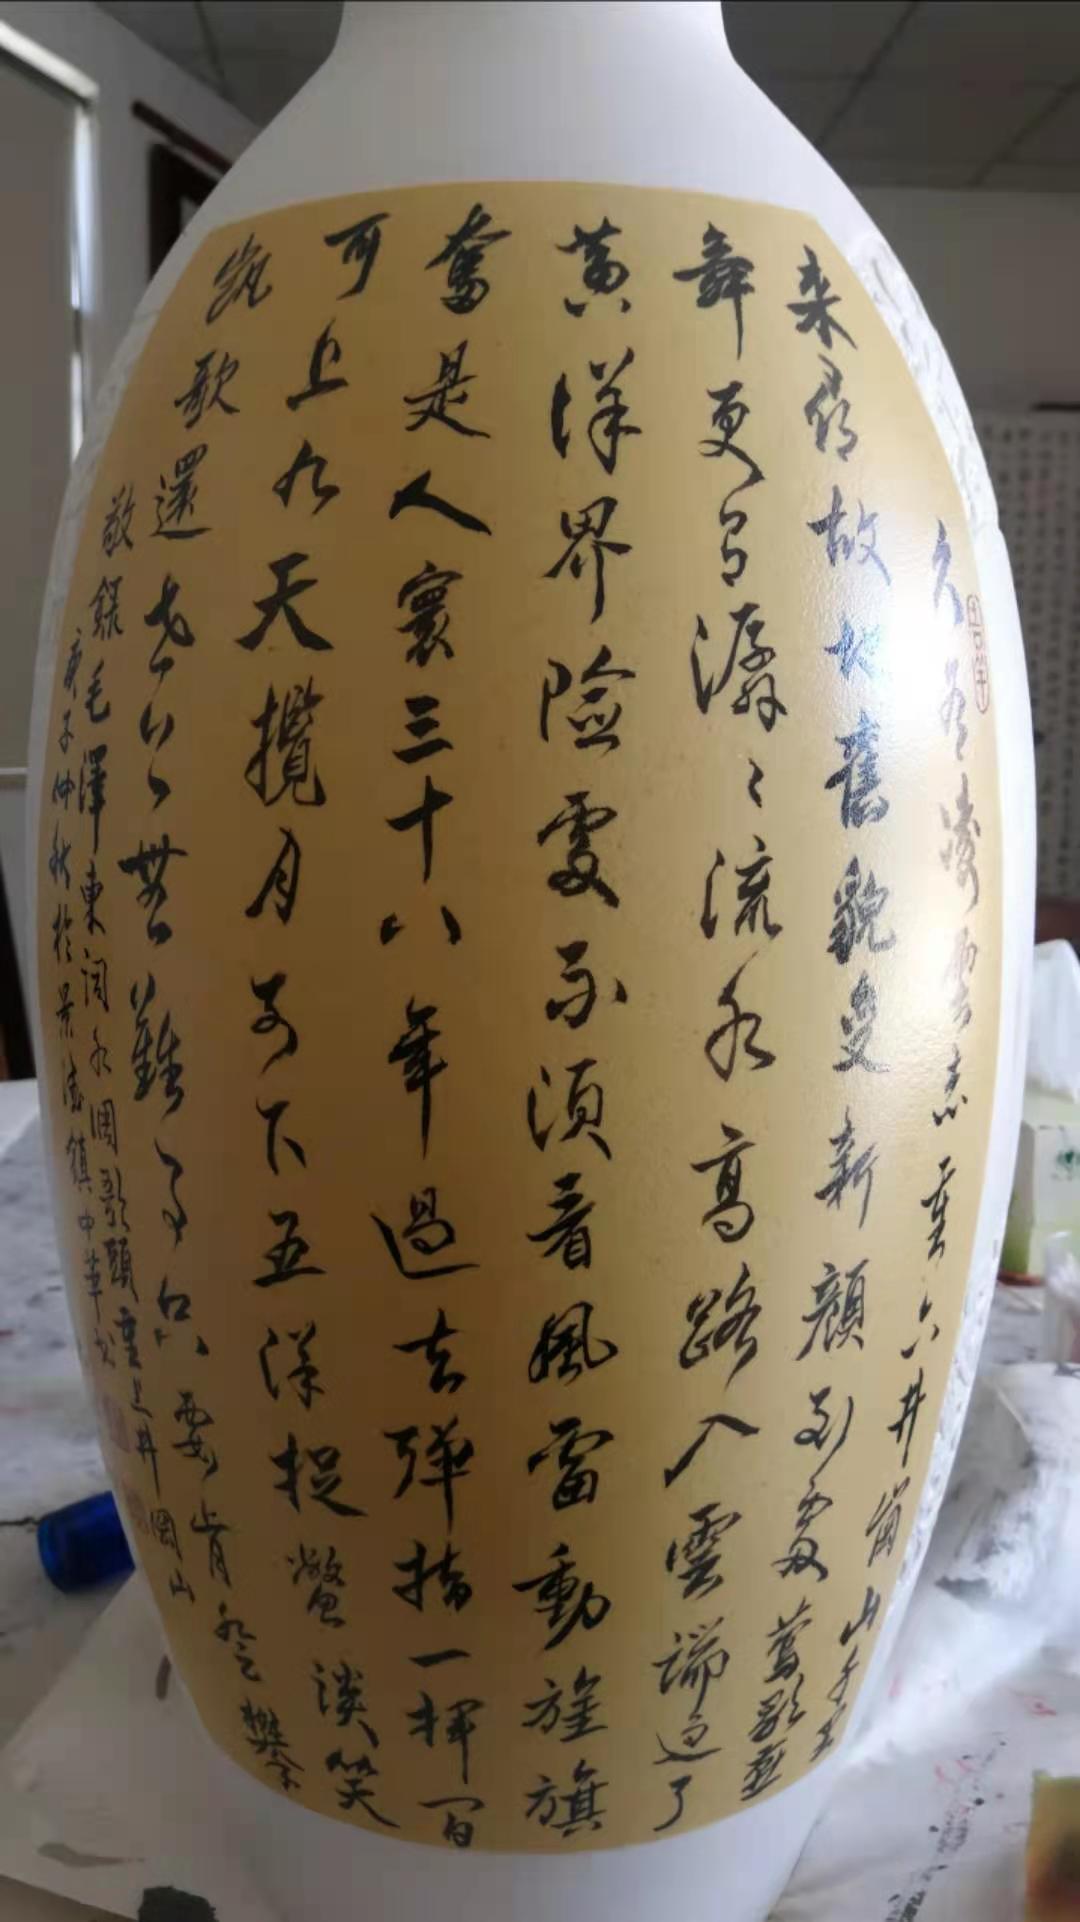 久有凌雲志重上井崗山千里
来尋故地舊貌變新顏到處鶯歌燕
舞更有潺々流水高路入雲端過了
黄洋界險處不須看風雷動旌旗
奮是人寰三十八年過去彈指一揮間
可上九天攬月可下五洋捉鱉談笑
凱歌還世上無難事只要肯登攀
敬錄毛澤東詞水調歌頭重上井岡山
庚子仲秋於景德鎮中華书